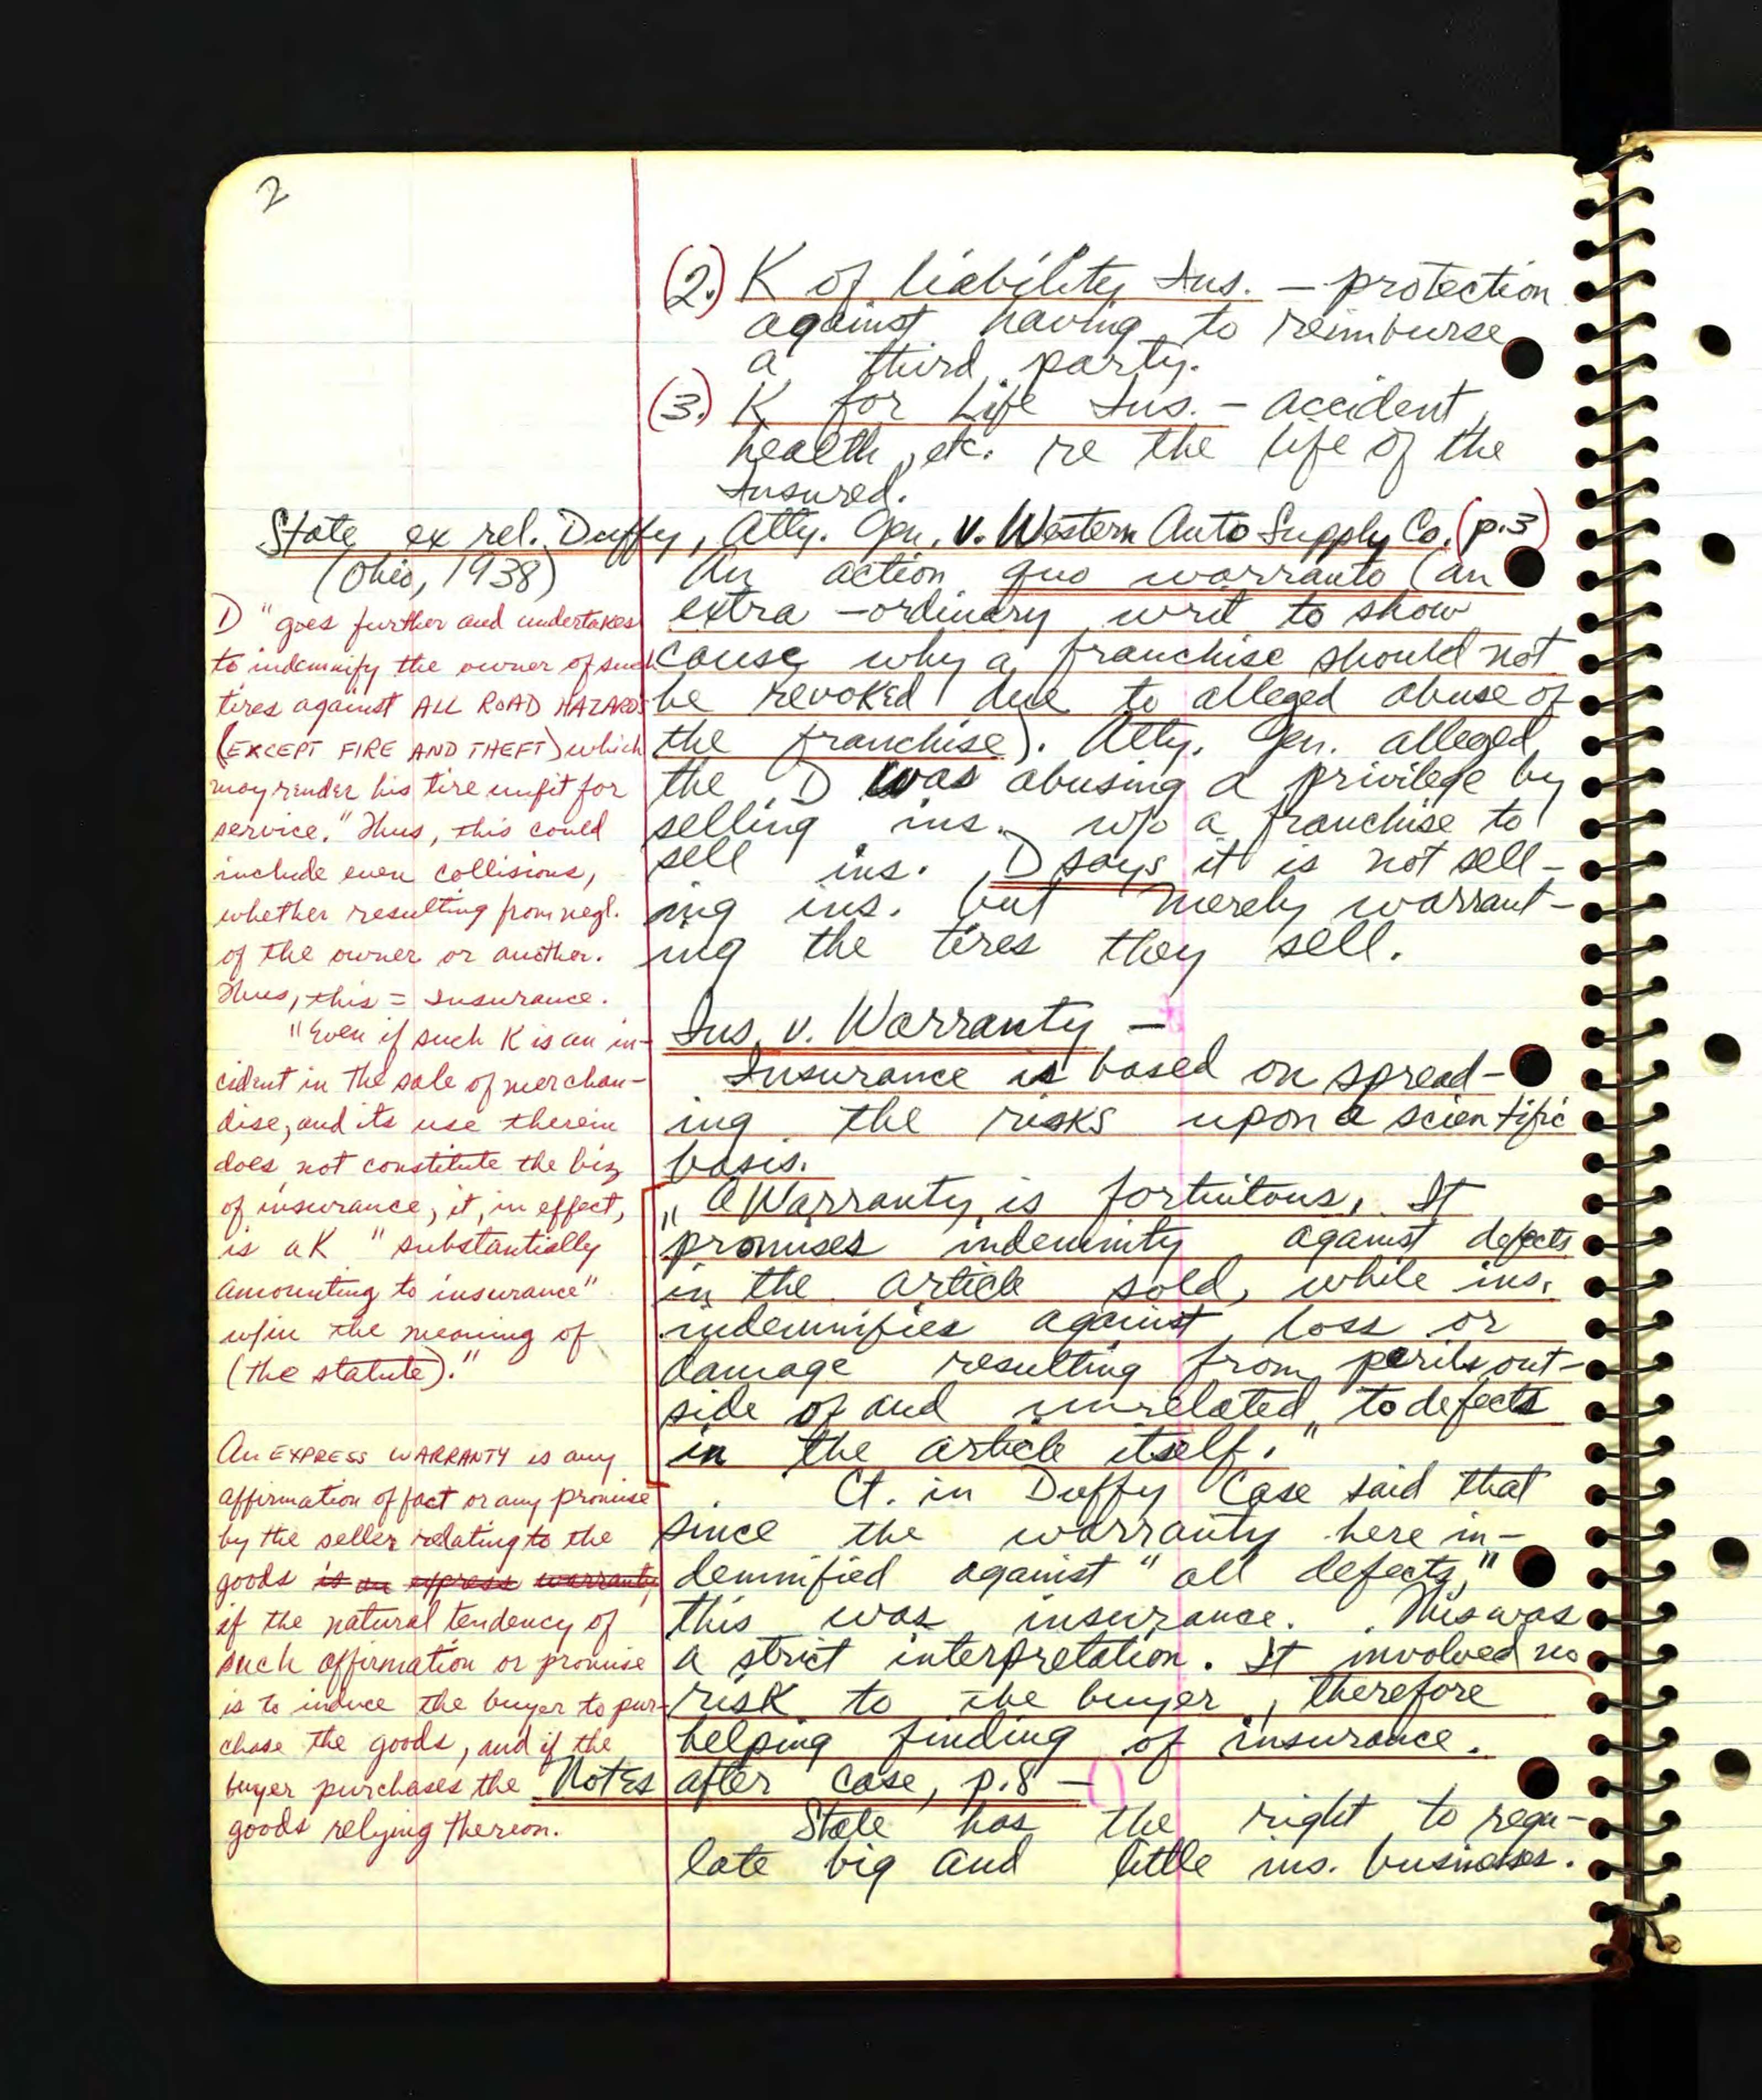 2
(2.) K of liability Ins. — protection
against having to reimburse
a third party.
(3.) K for Life Ins. — accident,
health, etc. re the life of the
Insured.
State ex rel. Duffy, Atty. Gen. v. Western Auto Supply Co. (p.3)
(Ohio, 1938)
An action quo warranto (an
extra-ordinary writ to show
cause why a franchise should not
be revoked due to alleged abuse of
the franchise). Atty. Gen. alleged
the D was abusing a privilege by
selling ins. w/o a franchise to
sell ins. D says it is not sell-
ing ins. but merely warrant-
ing the tires they sell.
Ins. v. Warranty —
Insurance is based on spread-
ing the risks upon a scientific
basis.
"A Warranty is fortuitous. It
promises indemnity against defects
in the article sold, while ins.
indemnifies against loss or
damage resulting from perils out-
side of and unrelated to defects
in the article itself."
Ct. in Duffy Case said that
since the warranty here in-
demnified against "all defects,"
this was insurance. This was
a strict interpretation. It involved no
risk to the buyer, therefore
helping finding of insurance.
Notes after case, p.8 —
State has the right to regu-
late big and little ins. businesses.
D "goes further and undertakes
to indemnify the owner of such
tires against ALL ROAD HAZARDS
(EXCEPT FIRE AND THEFT) which
may render his tire unfit for
service." Thus, this could
include even collisions,
whether resulting from negl.
of the owner or another.
Thus, this = Insurance.
"Even if such K is an in-
cident in the sale of merchan-
dise, and its use therein
does not constitute the biz
of insurance, it, in effect,
is a K "substantially
amounting to insurance"
w/in the meaning of
(the statute)."
An EXPRESS WARRANTY is any
affirmation of fact or any promise
by the seller relating to the
goods is an express warranty,
if the natural tendency of
such affirmation or promise
is to induce the buyer to pur-
chase the goods, and if the
buyer purchases the
goods relying thereon.